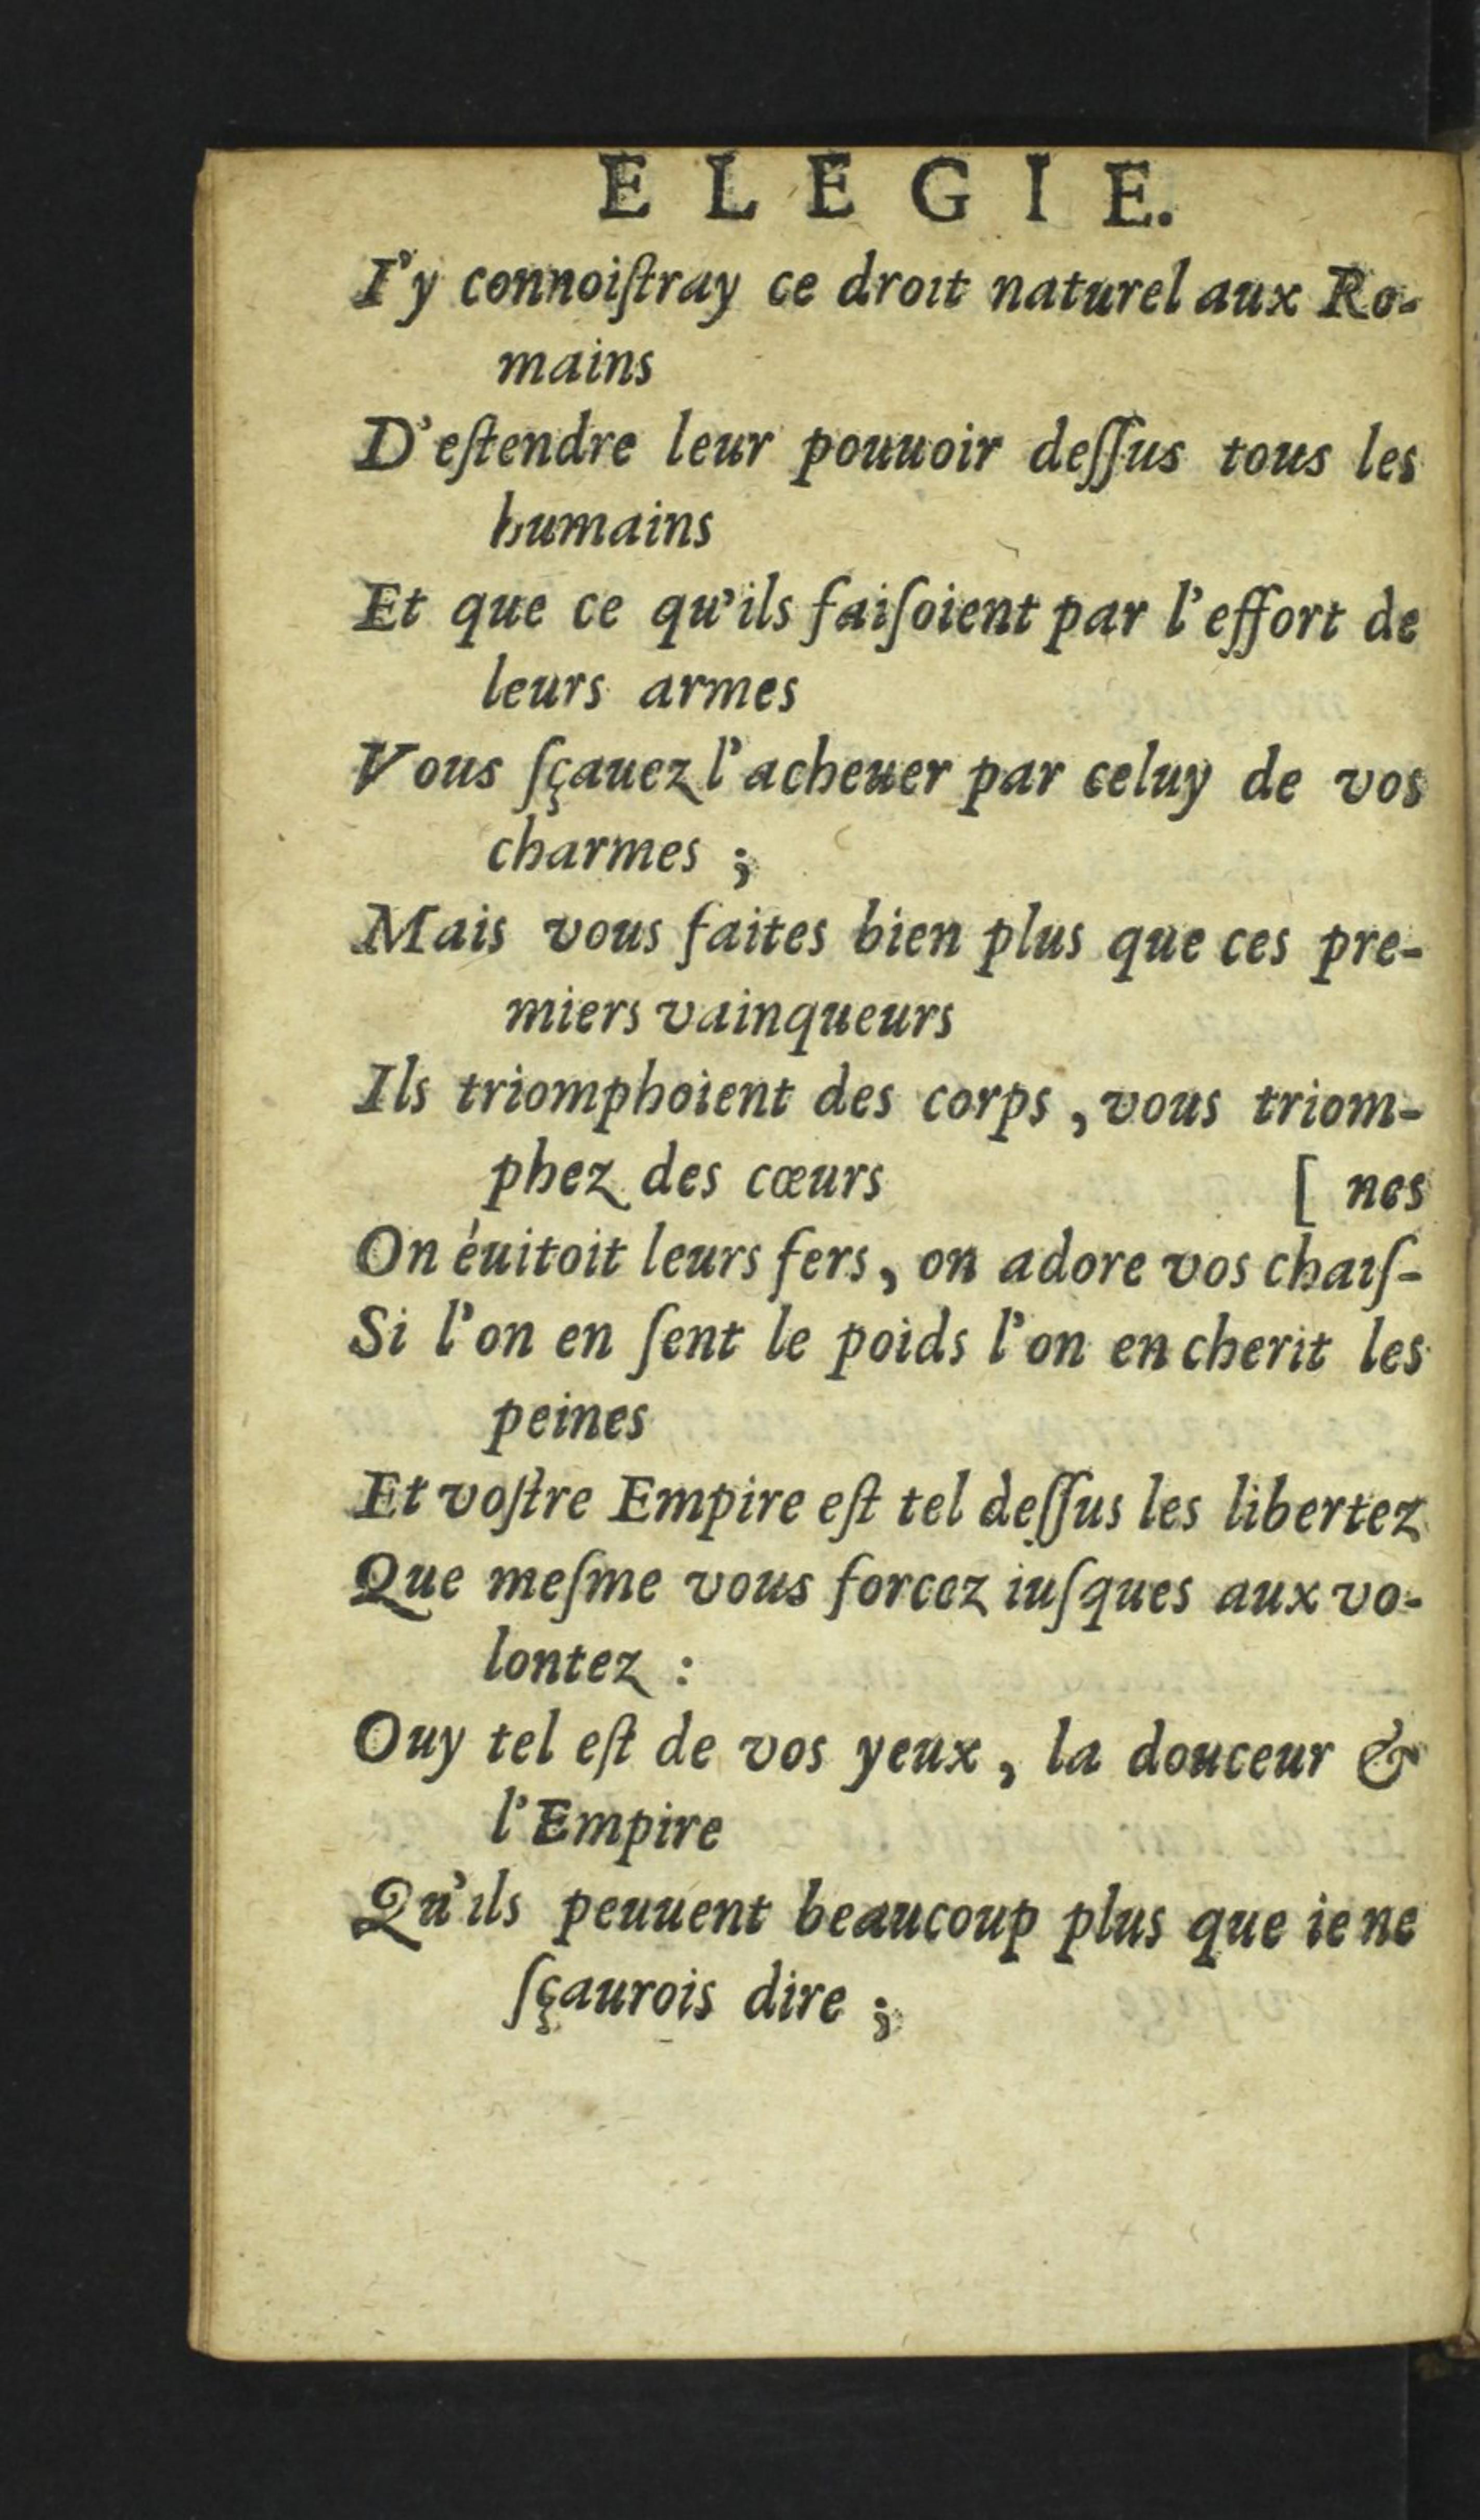 ELEGIE.
I'y connoiſtray ce droit naturel aux Ro-
mains
D'eſtendre leur pouuoir deſſus tous les
humains
Et que ce qu'ils faiſoient par l'effort de
leurs armes
Vous ſçauez l'acheuer par celuy de vos
charmes ;
Mais vous faites bien plus que ces pre-
miers vainqueurs
Ils triomphoient des corps , vous triom-
phez des cœurs [ nes
On éuitoit leurs fers, on adore vos chaiſ-
Si l'on en ſent le poids l'on en cherit les
peines
Et voſtre Empire eſt tel deſſus les libertez
Que meſme vous forcez iuſques aux vo-
lontez :
Ouy tel eſt de vos yeux, la douceur &
l'Empire
Qu'ils peuuent beaucoup plus que ie ne
ſçaurois dire ;